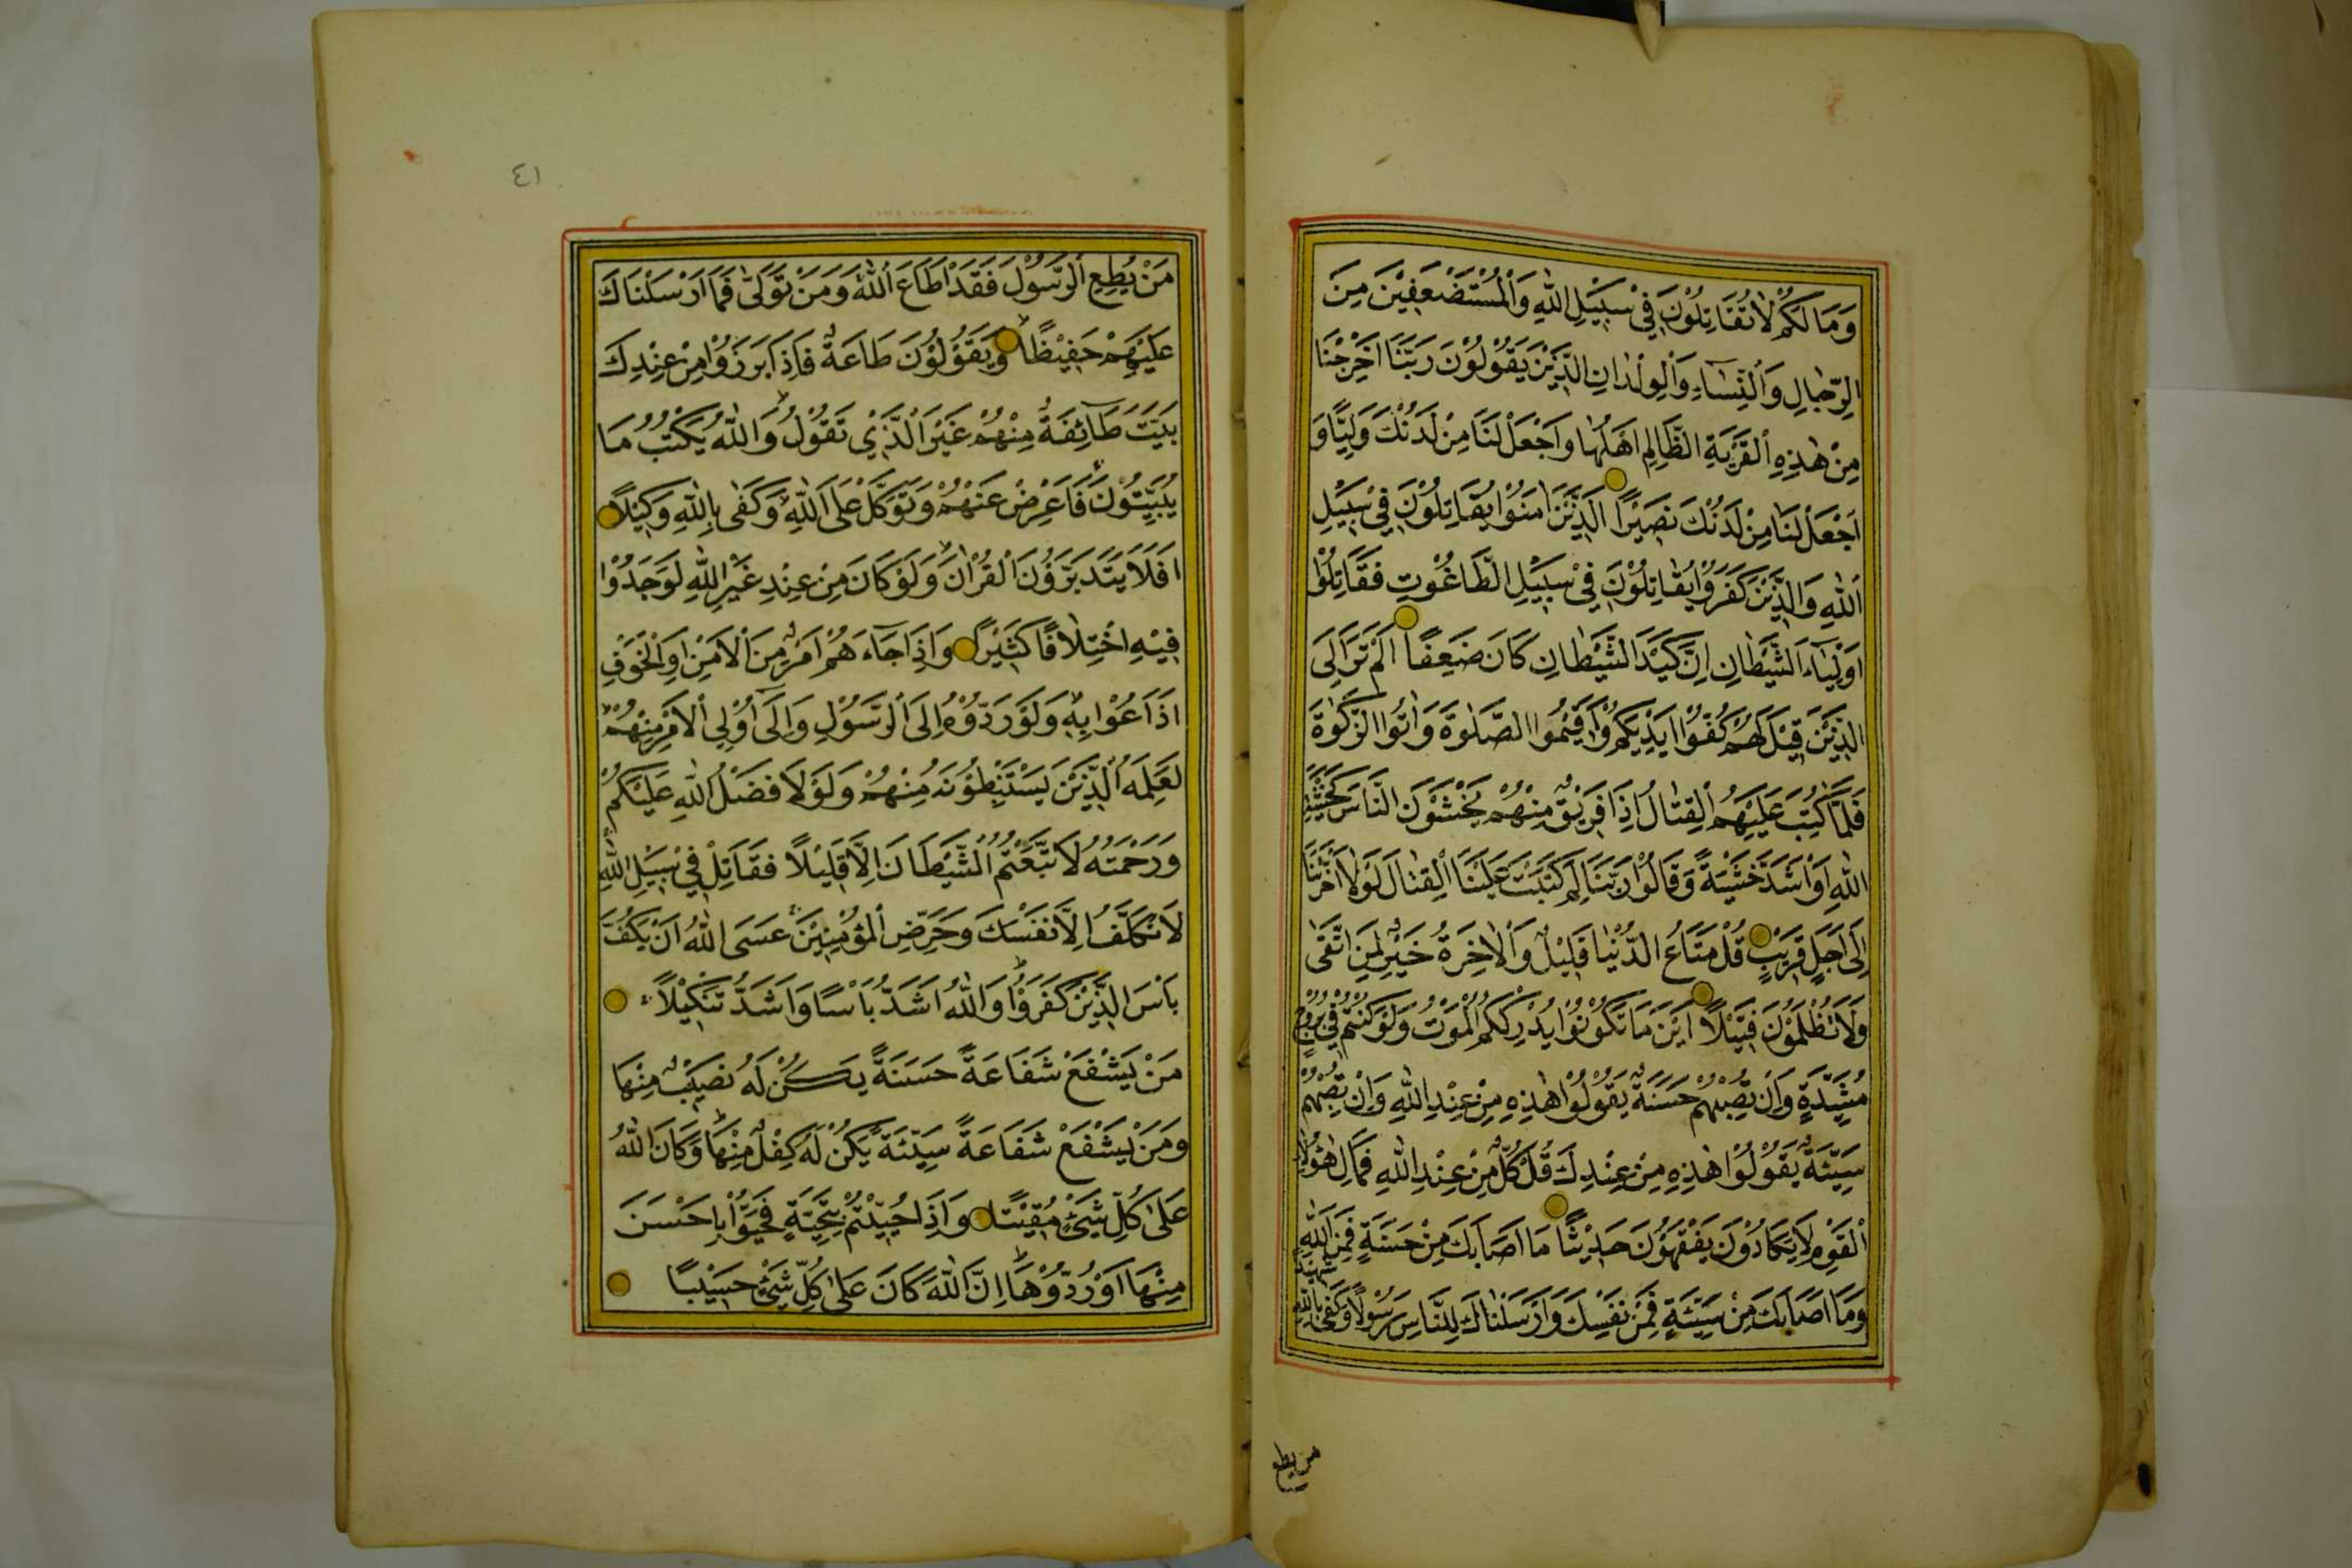 وَمَا لَكُمْ لَا تُقَاتِلُوْنَ فِيْ سَبِيْلِ اللّٰهِ وَالْمُسْتَضْعَفِيْنَ مِنَ
الرِّجَالِ وَالنِّسَاۤءِ وَالْوِلْدَانِ الَّذِيْنَ يَقُوْلُوْنَ رَبَّنَا اَخْرِجْنَا
مِنْ هٰذِهِ الْقَرْيَةِ الظَّالِمِ اَهْلُهَا وَاجْعَلْ لَنَا مِنْ لَدُنْكَ وَلِيًّا وَ
اجْعَلْ لَنَا مِنْ لَدُنْكَ نَصِيْرًا الَّذِيْنَ اٰمَنُوْا يُقَاتِلُوْنَ فِيْ سَبِيْلِ
اللّٰهِ وَالَّذِيْنَ كَفَرُوْا يُقَاتِلُوْنَ فِيْ سَبِيْلِ الطَّاغُوْتِ فَقَاتِلُوْا
اَوْلِيَاۤءَ الشَّيْطَانِ اِنَّ كَيْدَ الشَّيْطَانِ كَانَ ضَعِيْفًا اَلَمْ تَرَ اِلَى
الَّذِيْنَ قِيْلَ لَهُمْ كُفُّوْا اَيْدِيَكُمْ وَاَقِيْمُوا الصَّلٰوةَ وَاٰتُوا الزَّكٰوةَ
فَلَمَّا كُتِبَ عَلَيْهِمُ الْقِتَالُ اِذَا فَرِيْقٌ مِنْهُمْ يَخْشَوْنَ النَّاسَ كَخَشْيَةِ
اللّٰهِ اَوْ اَشَدَّ خَشْيَةً وَقَالُوْا رَبَّنَا لِمَ كَتَبْتَ عَلَيْنَا الْقِتَالَ لَوْلَا اَخَّرْتَنَا
اِلٰى اَجَلٍ قَرِيْبٍ قُلْ مَتَاعُ الدُّنْيَا قَلِيْلٌ وَالْاٰخِرَةُ خَيْرٌ لِمَنِ اتَّقٰى
وَلَا تُظْلَمُوْنَ فَتِيْلًا اَيْنَ مَا تَكُوْنُوْا يُدْرِكْكُمُ الْمَوْتُ وَلَوْ كُنْتُمْ فِيْ بُرُوْجٍ
مُشَيَّدَةٍ وَاِنْ تُصِبْهُمْ حَسَنَةٌ يَقُوْلُوْا هٰذِهِ مِنْ عِنْدِ اللّٰهِ وَاِنْ تُصِبْهُمْ
سَيِّئَةٌ يَقُوْلُوْا هٰذِهِ مِنْ عِنْدِكَ قُلْ كُلٌّ مِنْ عِنْدِ اللّٰهِ فَمَالِ هٰؤُلَاءِ
الْقَوْمِ لَا يَكَادُوْنَ يَفْقَهُوْنَ حَدِيْثًا مَا اَصَابَكَ مِنْ حَسَنَةٍ فَمِنَ اللّٰهِ
وَمَا اَصَابَكَ مِنْ سَيِّئَةٍ فَمِنْ نَفْسِكَ وَاَرْسَلْنَاكَ لِلنَّاسِ رَسُوْلًا وَكَفٰى بِاللّٰهِ شَهِيْدًا
من يطع
٤١
مَنْ يُطِعِ الرَّسُوْلَ فَقَدْ اَطَاعَ اللّٰهَ وَمَنْ تَوَلّٰى فَمَا اَرْسَلْنَاكَ
عَلَيْهِمْ حَفِيْظًا وَيَقُوْلُوْنَ طَاعَةٌ فَاِذَا بَرَزُوْا مِنْ عِنْدِكَ
بَيَّتَ طَاۤئِفَةٌ مِنْهُمْ غَيْرَ الَّذِيْ تَقُوْلُ وَاللّٰهُ يَكْتُبُ مَا
يُبَيِّتُوْنَ فَاَعْرِضْ عَنْهُمْ وَتَوَكَّلْ عَلَى اللّٰهِ وَكَفٰى بِاللّٰهِ وَكِيْلًا
اَفَلَا يَتَدَبَّرُوْنَ الْقُرْاٰنَ وَلَوْ كَانَ مِنْ عِنْدِ غَيْرِ اللّٰهِ لَوَجَدُوْا
فِيْهِ اخْتِلَافًا كَثِيْرًا وَاِذَا جَاۤءَهُمْ اَمْرٌ مِنَ الْاَمْنِ اَوِ الْخَوْفِ
اَذَاعُوْا بِهٖ وَلَوْ رَدُّوْهُ اِلَى الرَّسُوْلِ وَاِلٰۤى اُوْلِي الْاَمْرِ مِنْهُمْ
لَعَلِمَهُ الَّذِيْنَ يَسْتَنْبِطُوْنَهُ مِنْهُمْ وَلَوْلَا فَضْلُ اللّٰهِ عَلَيْكُمْ
وَرَحْمَتُهُ لَاتَّبَعْتُمُ الشَّيْطَانَ اِلَّا قَلِيْلًا فَقَاتِلْ فِيْ سَبِيْلِ اللّٰهِ
لَا تُكَلَّفُ اِلَّا نَفْسَكَ وَحَرِّضِ الْمُؤْمِنِيْنَ عَسَى اللّٰهُ اَنْ يَكُفَّ
بَاْسَ الَّذِيْنَ كَفَرُوْا وَاللّٰهُ اَشَدُّ بَاْسًا وَاَشَدُّ تَنْكِيْلًا
مَنْ يَشْفَعْ شَفَاعَةً حَسَنَةً يَكُنْ لَهُ نَصِيْبٌ مِنْهَا
وَمَنْ يَشْفَعْ شَفَاعَةً سَيِّئَةً يَكُنْ لَهُ كِفْلٌ مِنْهَا وَكَانَ اللّٰهُ
عَلٰى كُلِّ شَيْءٍ مُقِيْتًا وَاِذَا حُيِّيْتُمْ بِتَحِيَّةٍ فَحَيُّوْا بِاَحْسَنَ
مِنْهَا اَوْ رُدُّوْهَا اِنَّ اللّٰهَ كَانَ عَلٰى كُلِّ شَيْءٍ حَسِيْبًا